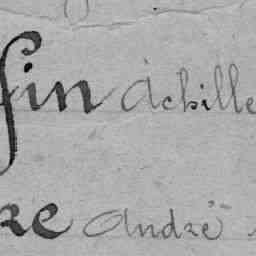 fin Achille
re André